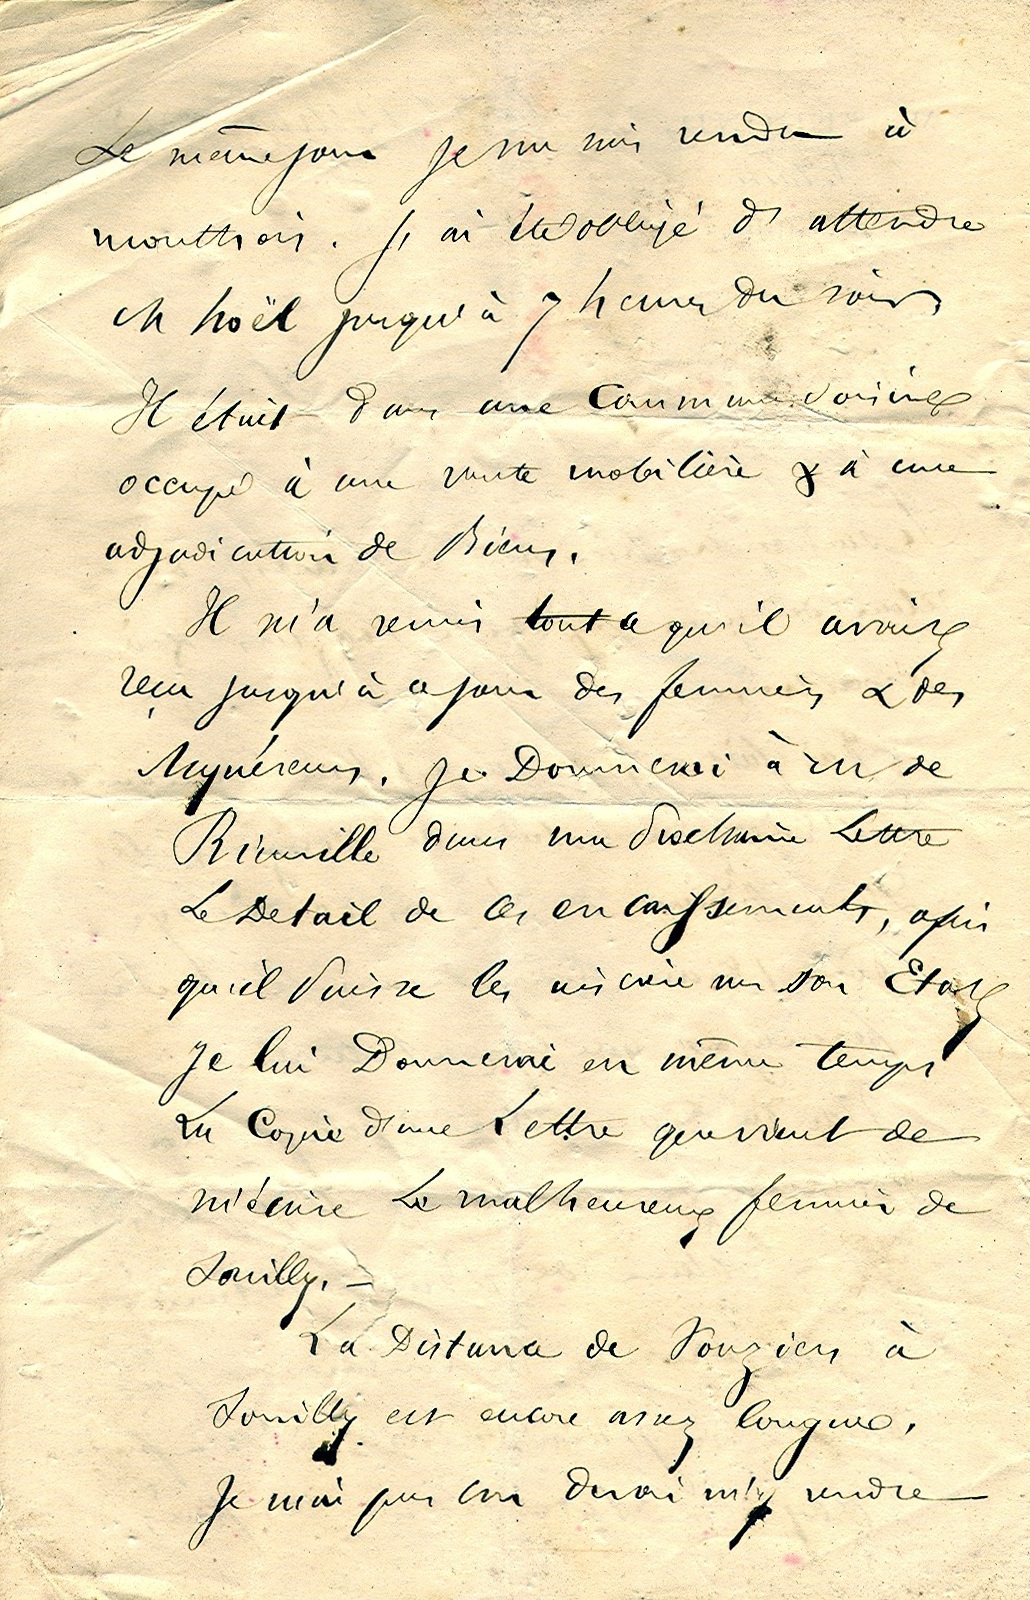 Le même jour je me suis rendu à
Monthois. J'ai été obligé de attendre
M Noël jusqu'à 7 heures du soir,
Il était dans une Commune voisine
occupé à une vente mobilière & à une
adjudication de Biens.
Il m'a remis tout ce qu'il avait
reçu jusqu'à ce jour des fermiers & des
Acquéreurs. Je Donnerai à M de
Riauville dans ma prochaine Lettre
Le Détail de ces encaissements, afin
qu'il puisse les inscrire sur son Etat
Je lui Donnerai en même temps
La Copie d'une Lettre que vient de
m'écrire Le malheureux fermier de
Souilly. —
La Distance de Vouziers à
Souilly est encore assez longue,
Je n'ai pas cru devoir m'y rendre